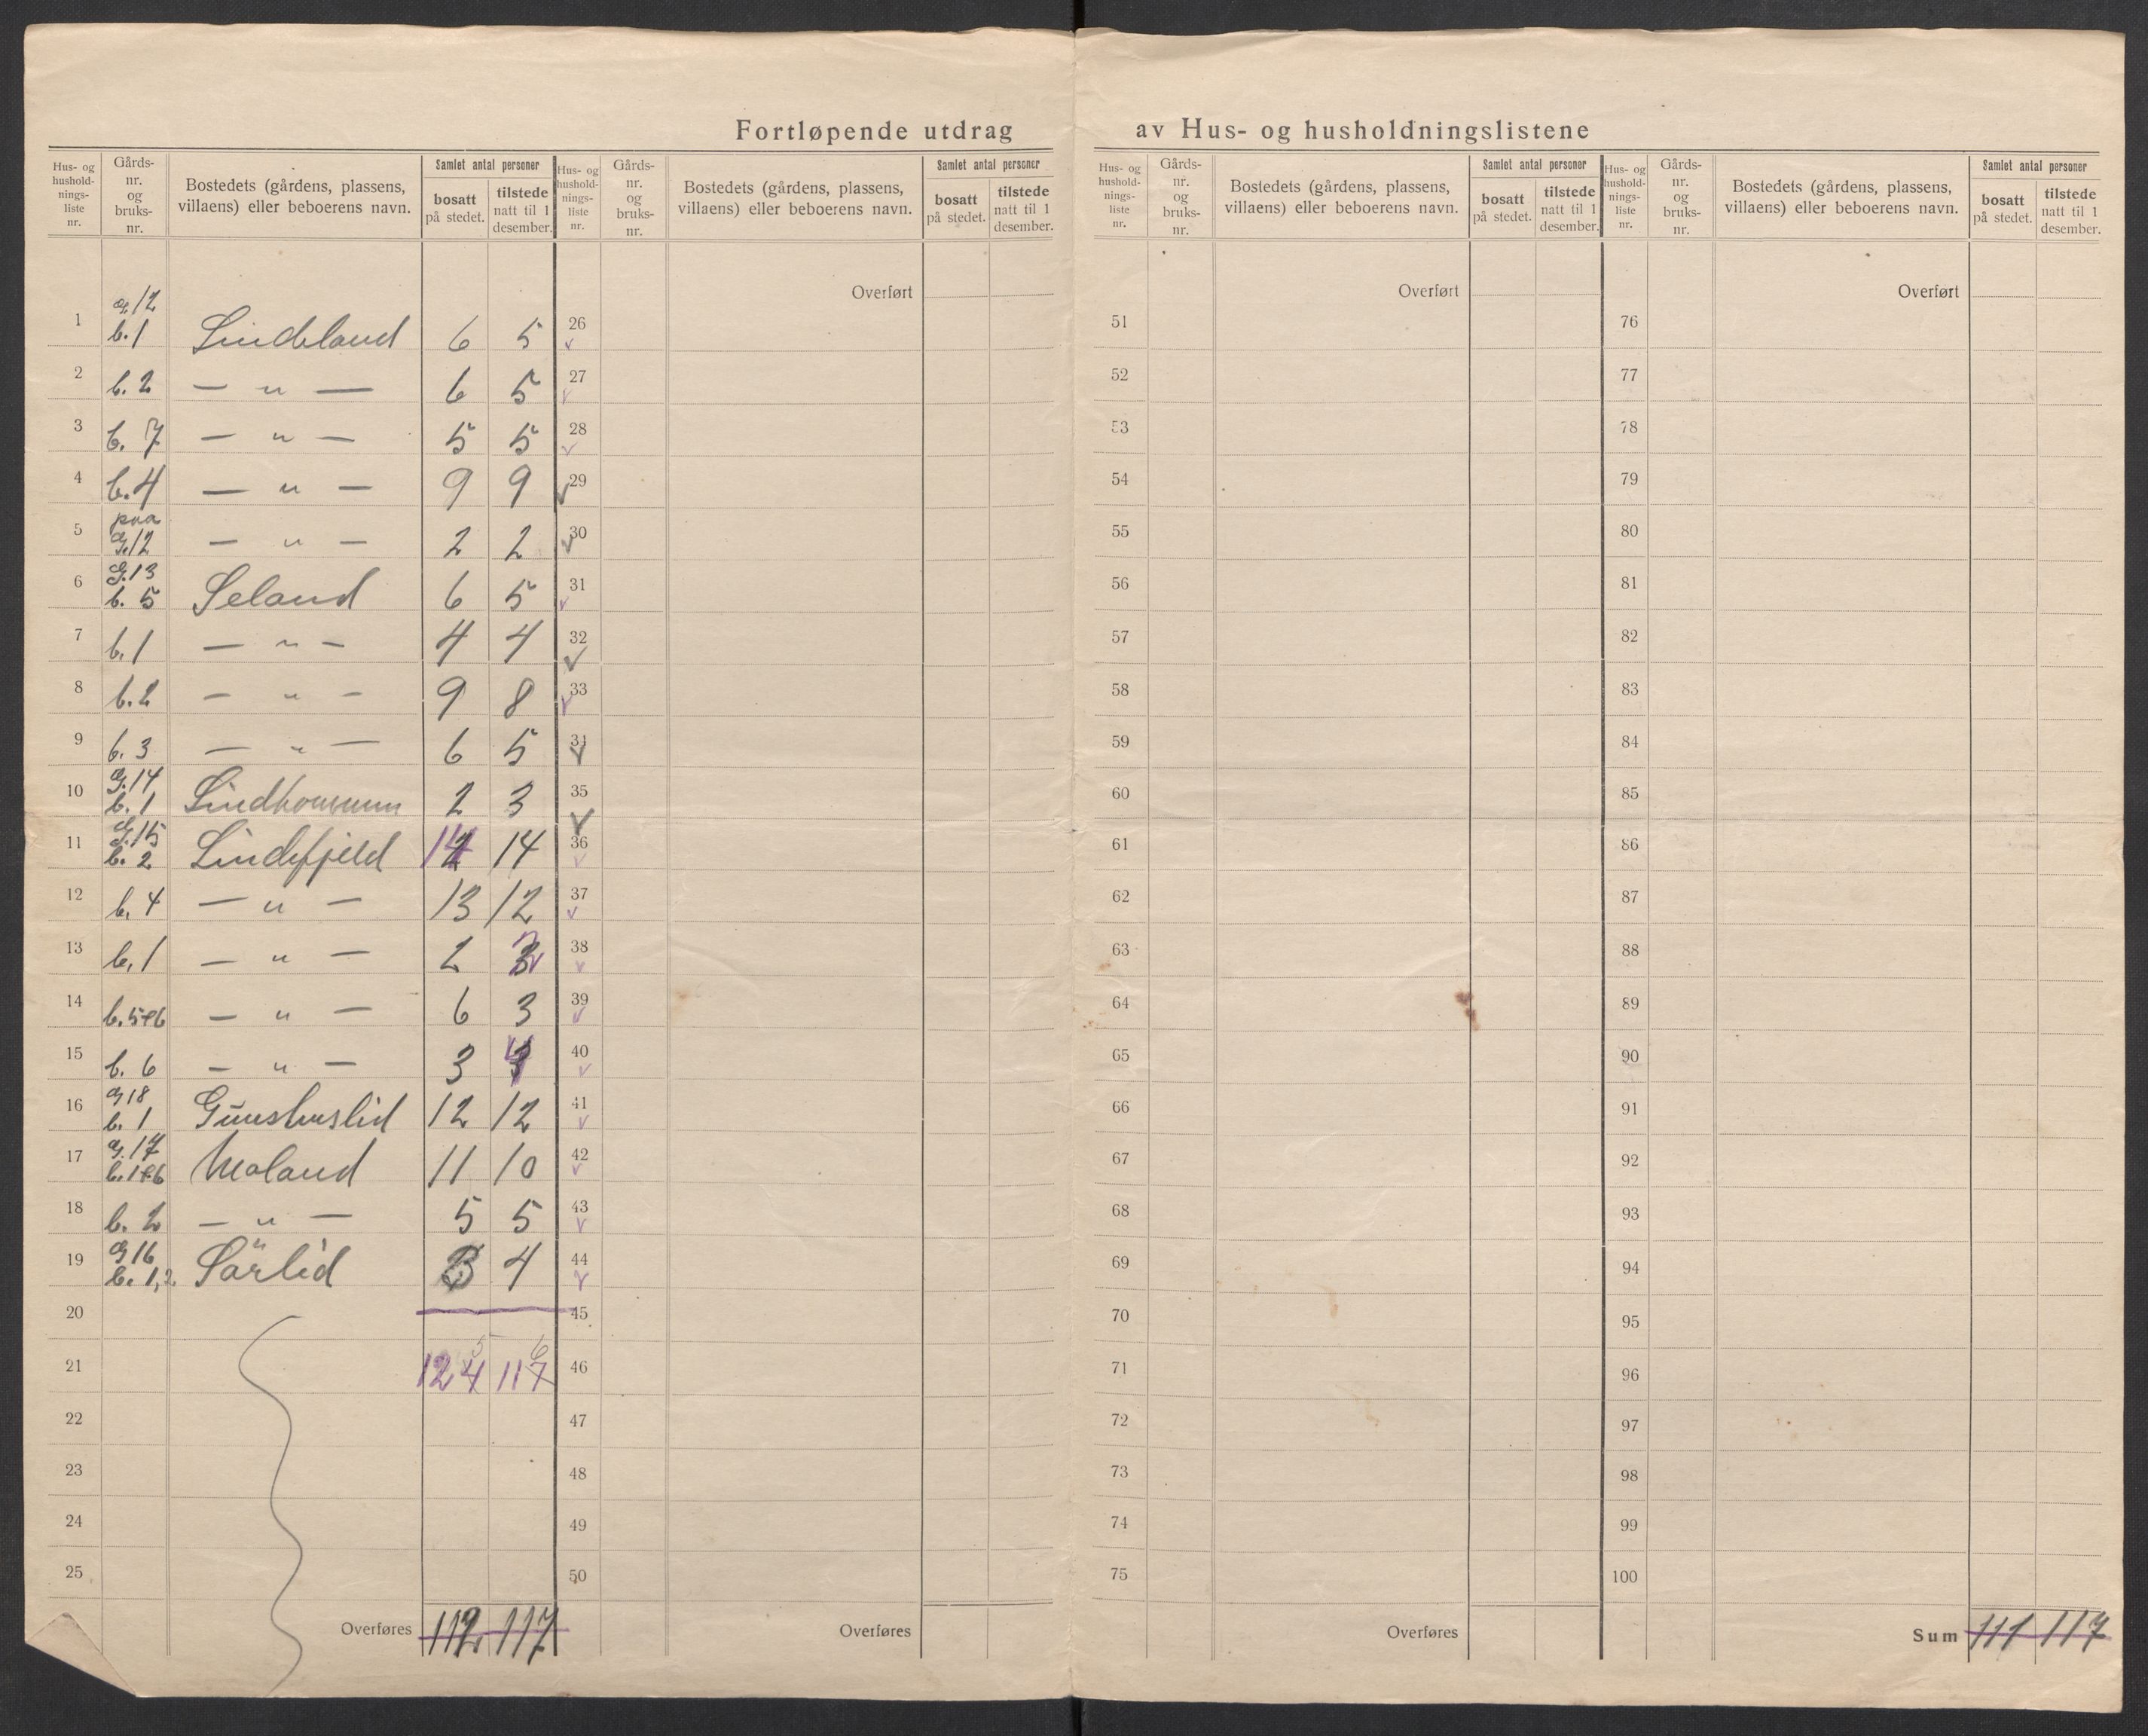 Fortløpende utdrag av Hus- og husholdningslistene
Hus- og hushold-nings-liste nr. Gårds-nr. og bruks-nr. Bostedets (gårdens, plassens, villaens) eller beboerens navn. Samlet antal personer bosatt på stedet. tilstede natt til 1 desember.
Hus- og hushold-nings-liste nr. Gårds-nr. og bruks-nr. Bostedets (gårdens, plassens, villaens) eller beboerens navn. Samlet antal personer bosatt på stedet. tilstede natt til 1 desember.
Hus- og hushold-nings-liste nr. Gårds-nr. og bruks-nr. Bostedets (gårdens, plassens, villaens) eller beboerens navn. Samlet antal personer bosatt på stedet. tilstede natt til 1 desember.
Hus- og hushold-nings-liste nr. Gårds-nr. og bruks-nr. Bostedets (gårdens, plassens, villaens) eller beboerens navn. Samlet antal personer bosatt på stedet. tilstede natt til 1 desember.
Overført Overført Overført
1 g. 12 b. 1 Lindeland 6 5 26 51 76
2 b. 2 — " — 6 5 27 52 77
3 b. 7 — " — 5 5 28 53 78
4 b. 4 — " — 9 9 29 54 79
5 paa G. 12 — " — 2 2 30 55 80
6 G. 13 b. 5 Seland 6 5 31 56 81
7 b. 1 — " — 4 4 32 57 82
8 b. 2 — " — 9 8 33 58 83
9 b. 3 — " — 6 5 34 59 84
10 G. 14 b. 1 2 3 35 60 85
11 G. 15 b. 2 Lindefjeld 14 14 36 61 86
12 b. 4 — " — 13 12 37 62 87
13 b. 1 — " — 2 38 63 88
14 b. 5+6 — " — 6 3 39 64 89
15 b. 6 — " — 3 4 40 65 90
16 G 18 b. 1 Gunshuslid 12 12 41 66 91
17 G. 17 b. 1+6 Moland 11 10 42 67 92
18 b. 2 — " — 5 5 43 68 93
19 G 16 b. 1,2 Sørlid 3 4 44 69 94
20 45 70 95
5 6
21 124 117 46 71 96
22 47 72 97
23 48 73 98
24 49 74 99
25 50 75 100
Overføres 112 117 Overføres Overføres Sum 111 117